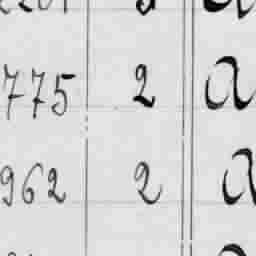 775 2 a
962 2 a